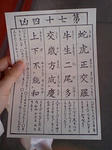 第七十四凶
蛇虎正交羅
牛生二尾多
交歳方成慶
上下不能和